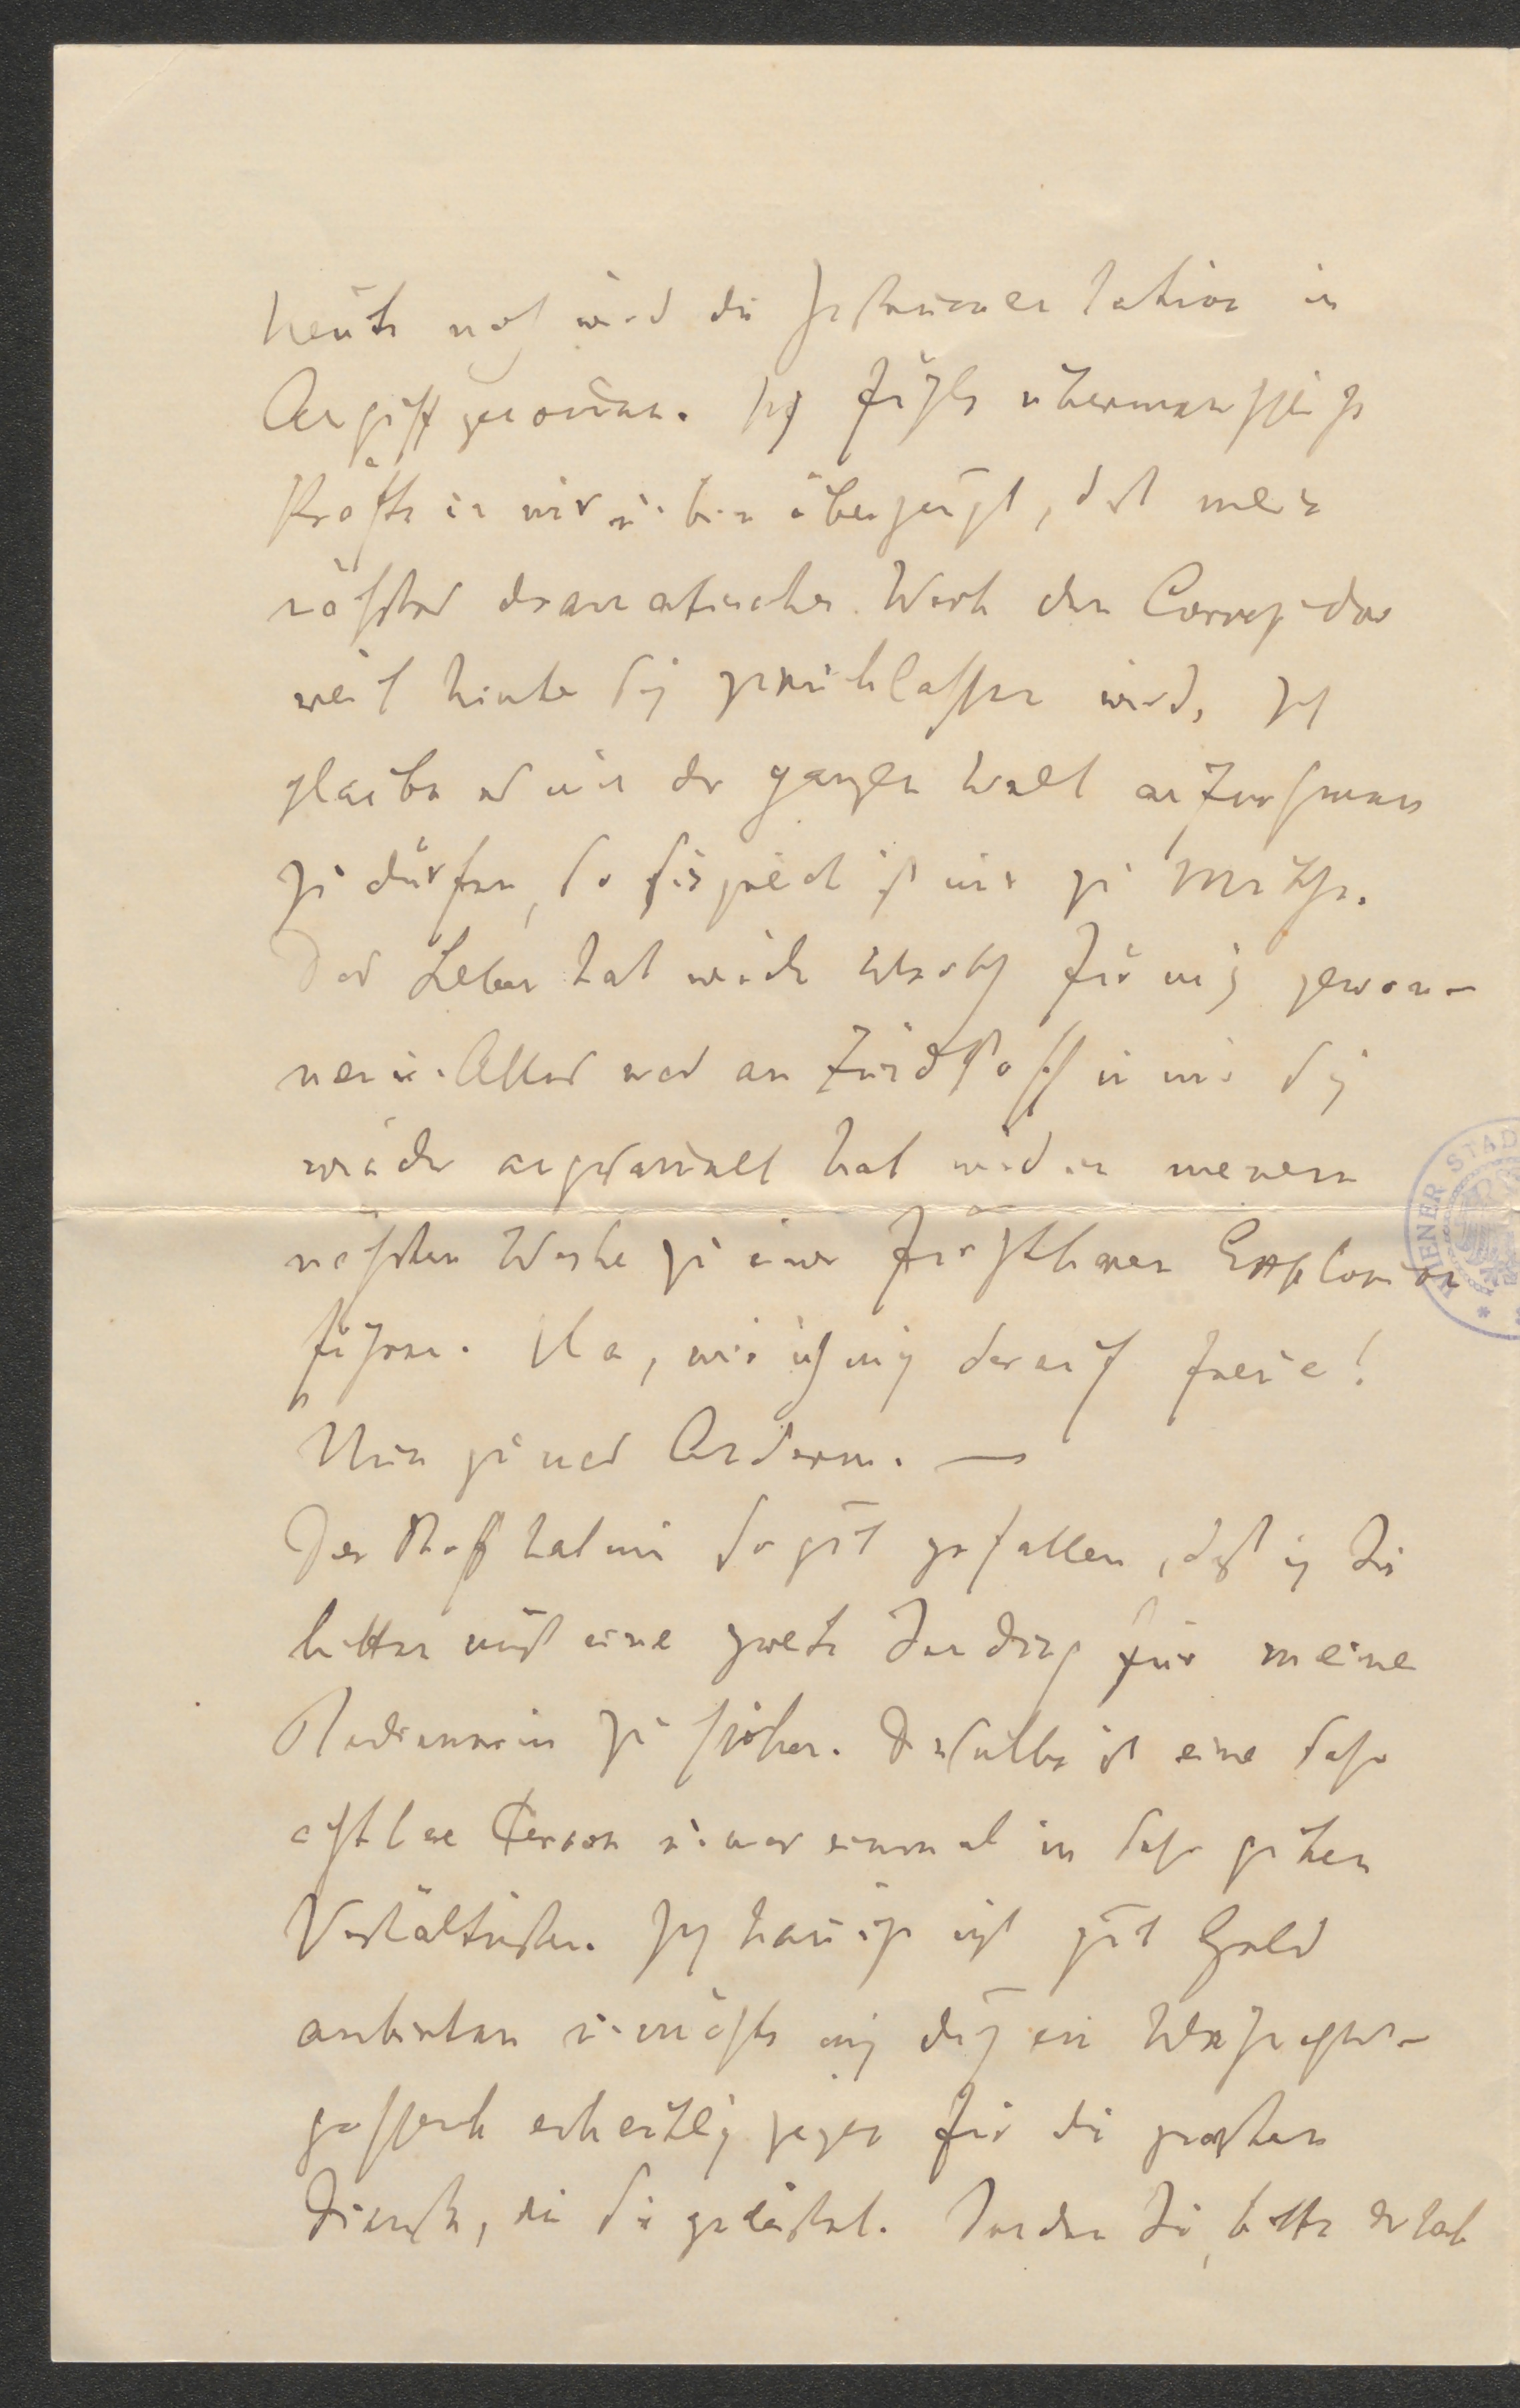 heute noch wird die Instrumentation in
Angriff genommen. Ich fühle übermenschliche
Kräfte in mir u. bin überzeugt, daß mein
nächstes dramatisches Werk den Corregidor
weit hinter sich zurücklassen wird. Ich
glaube es mit der ganzen Welt aufnehmen
zu dürfen, so ist mir zu Muthe.
Das Leben hat wieder Werth für mich gewon-
nen u. Alles was an Zündstoff in mir sich
wieder angesammelt hat wird in meinem
nächsten Werke zu einer furchtbaren Explosion
führen. Na, wie ich mich darauf freue!
Nun zu was Anderm. —
Der Stoff hat mir so gut gefallen, daß ich Sie
bitten muß eine zweite Sendung für meine
Bedienerin zu schicken. Dieselbe ist eine sehr
achtbare Person u. war einmal in sehr guten
Verhältnissen. Ich kann ihr nicht gut Geld
anbieten u. möchte mich durch ein Weihnachts-
geschenk erkentlich zeigen für die großen
Dienste, die sie geleistet. Senden Sie, bitte deshalb
WIENER STAD